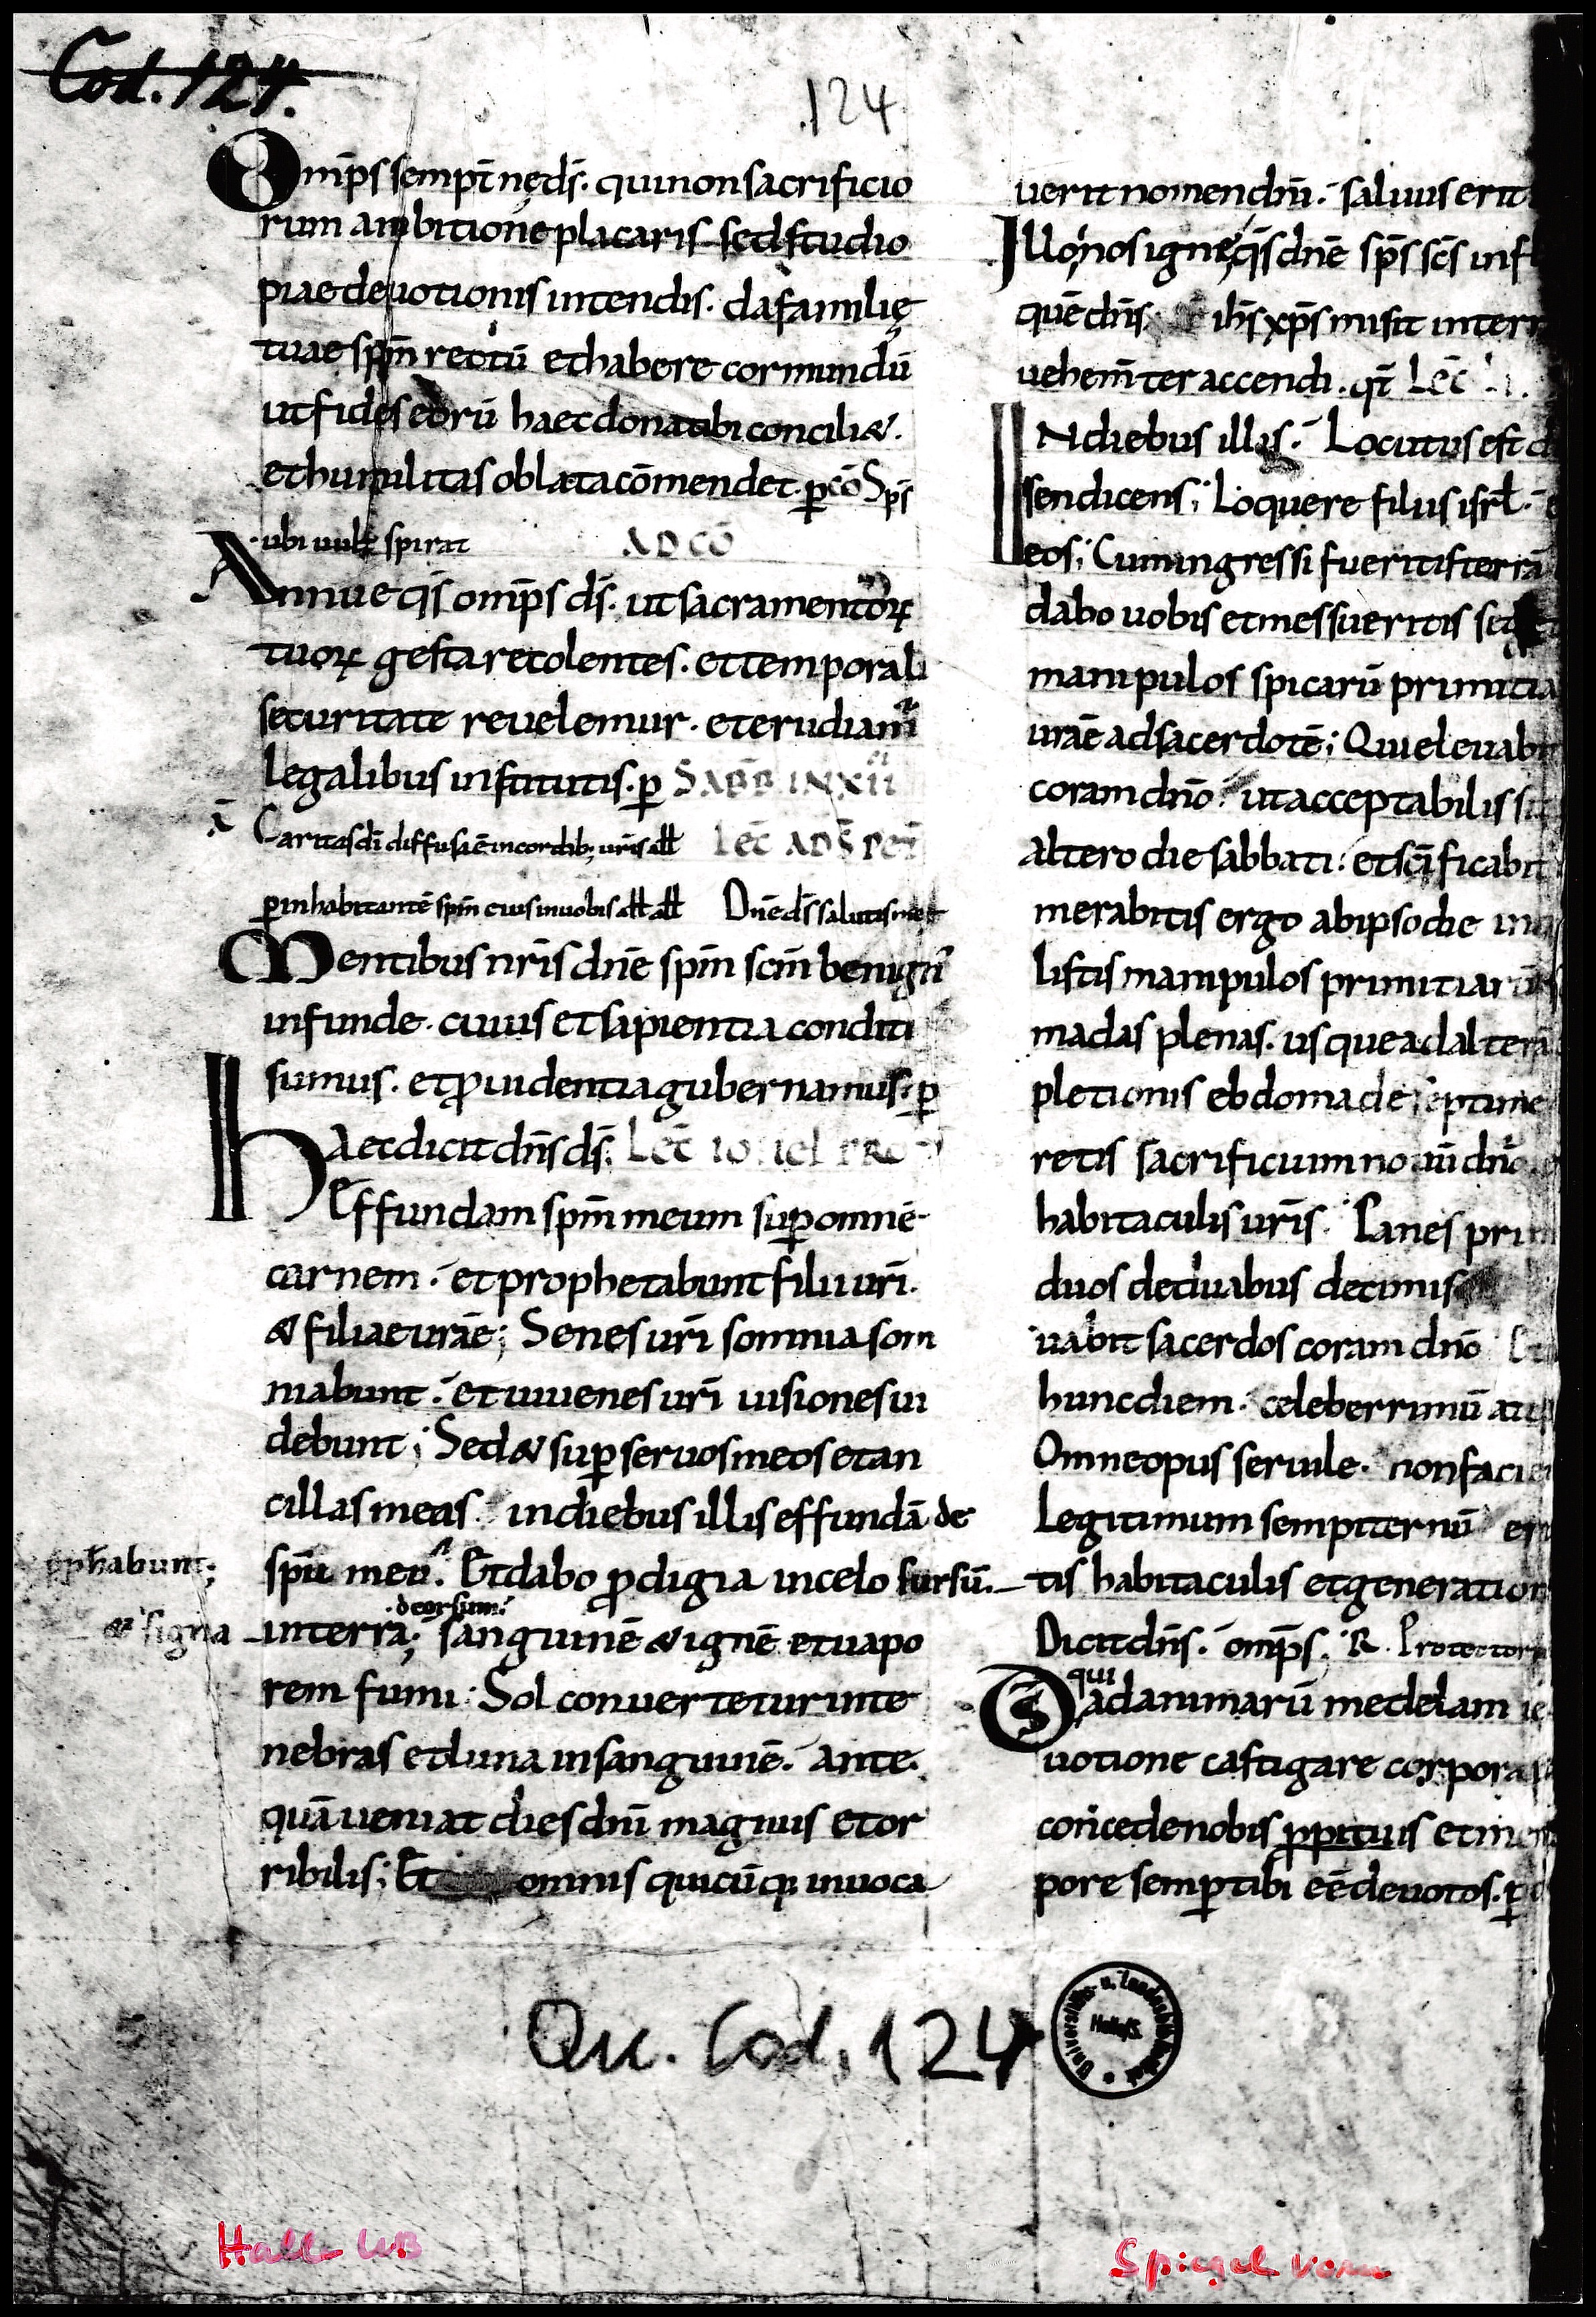 Cod. 124.
124
Omp̄s sempt̄nę ds̄. qui non sacrificio
rum ambitione placaris sed studio
piae deuotionis intendis. da familię
tuae spm̄ rectū et habere cor mundū
ut fides eorū haec dona tibi conciliɛ&.
et humilitas oblata cōmendet. p̱ cō Sps̄
ubi uult spirat AD CŌ
Annue qs̄ omp̄s ds̄. ut sacramentoꝝ
tuoꝝ gesta recolentes. et temporali
securitate reuelemur. et erudiam̄
legalibus institutis. ꝑ SABB IN XII
Caritas dī diffusa ē in cordib; uris̄ all̄ Lec̄ AD S̄ PET̄
ꝑ inhabitantē spm̄ eius in uobis all̄ all̄ Dnē ds̄ salutis meę
Mentibus nris̄ dnē spm̄ scm̄ benign̄
infunde. cuius et sapientia conditi
sumus. et ꝓuidentia gubernamus. ꝑ
haec dicit dn̄s ds̄. Lec̄
Effundam spm̄ meum suꝑ omnē
carnem. et prophetabunt filii uri̅.
& filiae uraē; Senes uri̅ somnia som
niabunt. et iuuenes uri̅ uisiones ui
debunt; Sed & suꝑ seruos meos et an
cillas meas. in diebus illis effundā de
ꝓph̄abunt; spū meo. Et dabo ꝓdigia in celo sursū.
deorsum.
& signa in terra; sanguinē & ignē et uapo
rem fumi. Sol conuertetur in te
nebras et luna in sanguinē. ante
quā ueniat dies dni̅ magnus et or
ribilis; Et omnis quicūq; inuoca
uerit nomen dni̅. saluus erit
Illo nos igne qs̄ dnē sps̄ scs̄ infl
quē dns̄ ihs̄ xps̄ misit in terr
uehem̄ter accendi. qi̅ Lec̄
IN diebus illis. Locutus est d
sen dicens; Loquere filiis isrl̄.
eos; Cum ingressi fueritis terrā
dabo uobis et messueritis seg
manipulos spicarū primitia
uraē ad sacerdotē; Qui eleuabi
coram dnō. ut acceptabilis si
altero die sabbati. et scīficabit
merabitis ergo ab ipso die in
listis manipulos primitiarū
madas plenas. usque ad alterā
pletionis ebdomade septime
retis sacrificium nouū dnō
habitaculis uris̄. Panes pri
duos de duabus decimis
uabit sacerdos coram dnō
hunc diem. celeberrimū at
Omne opus seruile. non faci
Legitimum sempiternū er
tis habitaculis et generation
Dicit dns̄. omp̄s. R. Protector
qui
Ds ad animarū medelam ie
uotione castigare corpora
concede nobis ꝓpitius et men
pore semꝑ tibi eē deuotos. ꝑ
Qu. Cod. 124
Universitäts- u. Landesbibliothek Halle/S.
Halle UB
Spiegel vorn